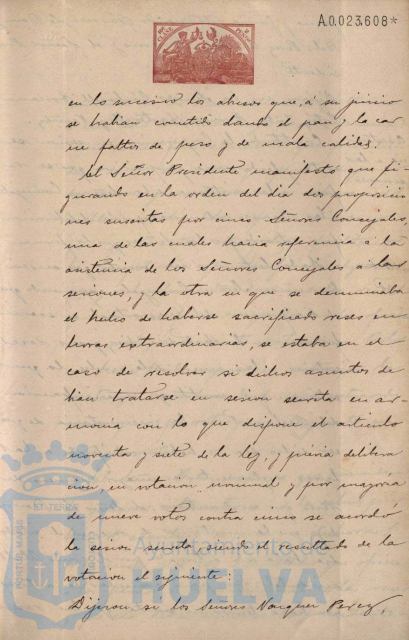 A.0.023.608*
en lo sucesivo los abusos que, á su juicio
se habian cometido dando el pan y la car
ne faltos de peso y de mala calidad.
El Señor Presidente manifestó que fi-
gurando en la orden del dia dos proposicio
nes suscritas por cinco Señores Concejales,
una de las cuales hacia referencia á la
asistencia de los Señores Concejales á las
sesiones, y la otra en que se denunciaba
el hecho de haberse sacrificado reses en
horas extraordinarias, se estaba en el
caso de resolver si dichos asuntos de-
bian tratarse en sesion secreta en ar-
monia con lo que dispone el articulo
noventa y siete de la ley, y prévia delibera
cion, en votacion nominal y por mayoria
de nueve votos contra cinco se acordó
la sesion secreta, siendo el resultado de la
votacion el siguiente:
Dijeron si los Señores Vazquez Perez,
Ayuntamiento de
HUELVA